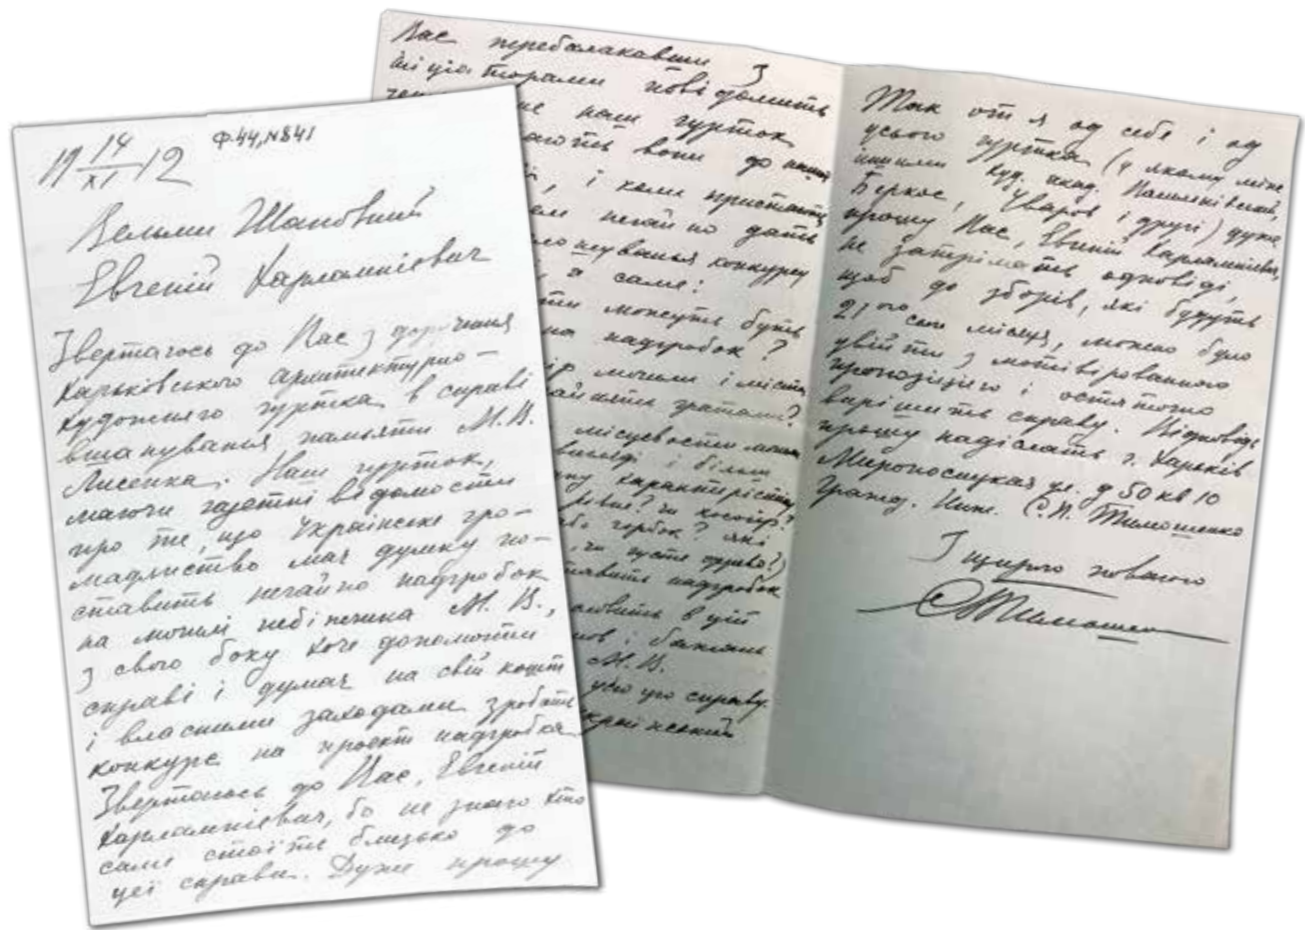 19 14/XI 12
Ф.44, №841
Вельми Шановний
Евгеній Харлампієвич
Звертаюсь до Вас з доручення
Харьківського архитектурно-
художнего гуртка в справі
вшанування памьяти М.В.
Лисенка. Наш гурток,
маючи газетні ведомости
про те, що Українське гро-
мадянство має думку по-
ставить негайно надгробок
на могилі небіжчика М. В.,
з свого боку хоче допомогти
справі і думає на свій кошт
і власними заходами зробить
конкурс на проект надгробка
Звертаюсь до Вас, Евгеній
Харлампієвич, бо не знаю хто
саме стоїть близько до
цеї справи. Дуже прошу
Вас перебалакавши з
ініціаторами повідомить
не наш гурток
вони до нашої
, і коли пристають
негайно дать
конкурсу
а саме:
можуть буть
на надгробок?
могили і міста
гратами?
місцевости
і більш
характеристику
рівне? чи косогір?
бо горбок? які
, чи пусте
надгробок
в цій
і бажань
М. В.
усю цю справу.
країнський
Так от я од себе і од
усього гуртка (у якому між
иншими худ. акад.
Беркос, Уваров і другі) дуже
прошу Вас, Евгеній Харлампієвич,
не затрімать одповіді,
щоб до зборів, які будуть
21го сего місяця, можно було
увійти з мотівированною
пропозіцією і остаточно
варішить справу. Відповідь
прошу надіслать г. Харьків
Мироносицкая ул. д 50 кв 10
Гражд. Инж. С. П. Тимошенко
З щирою повагою
СТимошенко